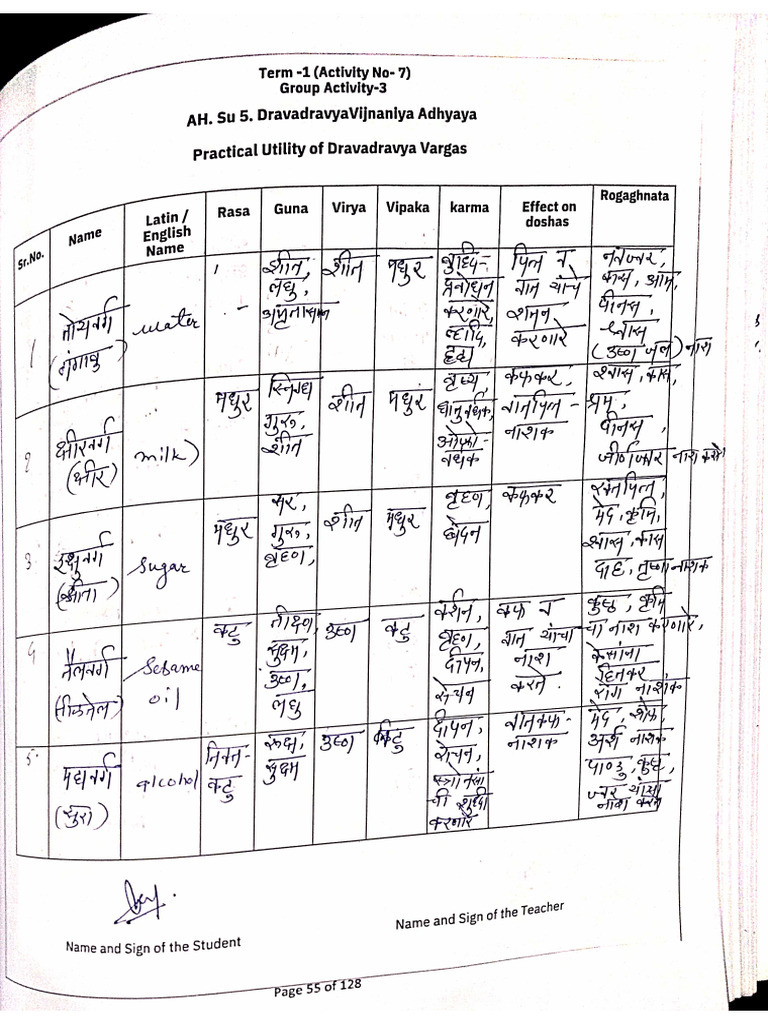 Term -1 (Activity No- 7)
Group Activity-3
AH. Su 5. DravadravyaVijnaniya Adhyaya
Practical Utility of Dravadravya Vargas
Sr.No. Name Latin / English Name Rasa Guna Virya Vipaka karma Effect on doshas Rogaghnata
1 तोयवर्ग (गंगाबु) water - शीत, लघु, शीत मधुर बुध्दि- प्रबोधन करणारे, हृद्य पित्त व वात यांचे शमन करणारे नवज्वर, कास, आम, पीनस, श्वास (उष्ण जल) नाश
2 क्षीरवर्ग (क्षीर) milk) मधुर स्निग्ध गुरु, शीत शीत मधुर वृष्य धातुवर्धक, कफकर, वातपित्त- नाशक श्वास, कास, श्रम, पीनस, जीर्णज्वर नाश करते
3 इक्षुवर्ग sugar मधुर सर, गुरु, बृहण, शीत मधुर बृहण, कफकर रक्तपित्त, मेद, कृमि, श्वास, कास दाह, तृष्णा नाशक
4 तैलवर्ग (तीळतेल) Sesame oil कटु तीक्ष्ण, सुक्ष्म, उष्ण, लघु उष्ण कटु कर्शन, बृहण, दीपन, कफ व वात यांचा नाश करते. कुष्ठ, कृमि चा नाश करणारे, केसांना हितकर
5 मद्यवर्ग (सुरा) alcohol कटु रूक्ष, सुक्ष्म उष्ण कटु दीपन, रोचन, स्त्रोतसां ची शुध्दी करणारे वातकफ- नाशक मेद, शोफ, अर्श नाशक पाण्डु, कुष्ठ, ज्वर यांसा नाश करते
Name and Sign of the Student
Name and Sign of the Teacher
Page 55 of 128